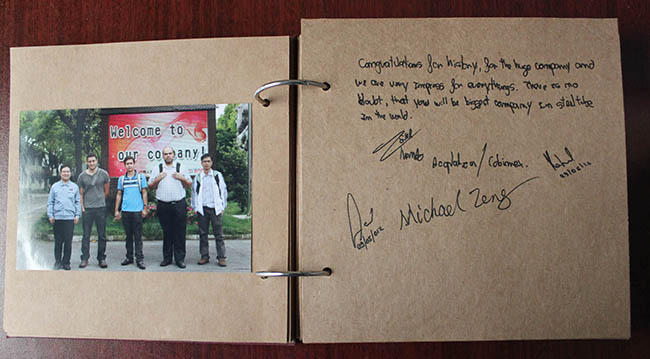 Welcome to
our company!
Congratulations for history, for the huge company and
we are very impress for everythings. There is no
doubt, that you will be biggest company in steel tube
in the world.
Michael Zeng